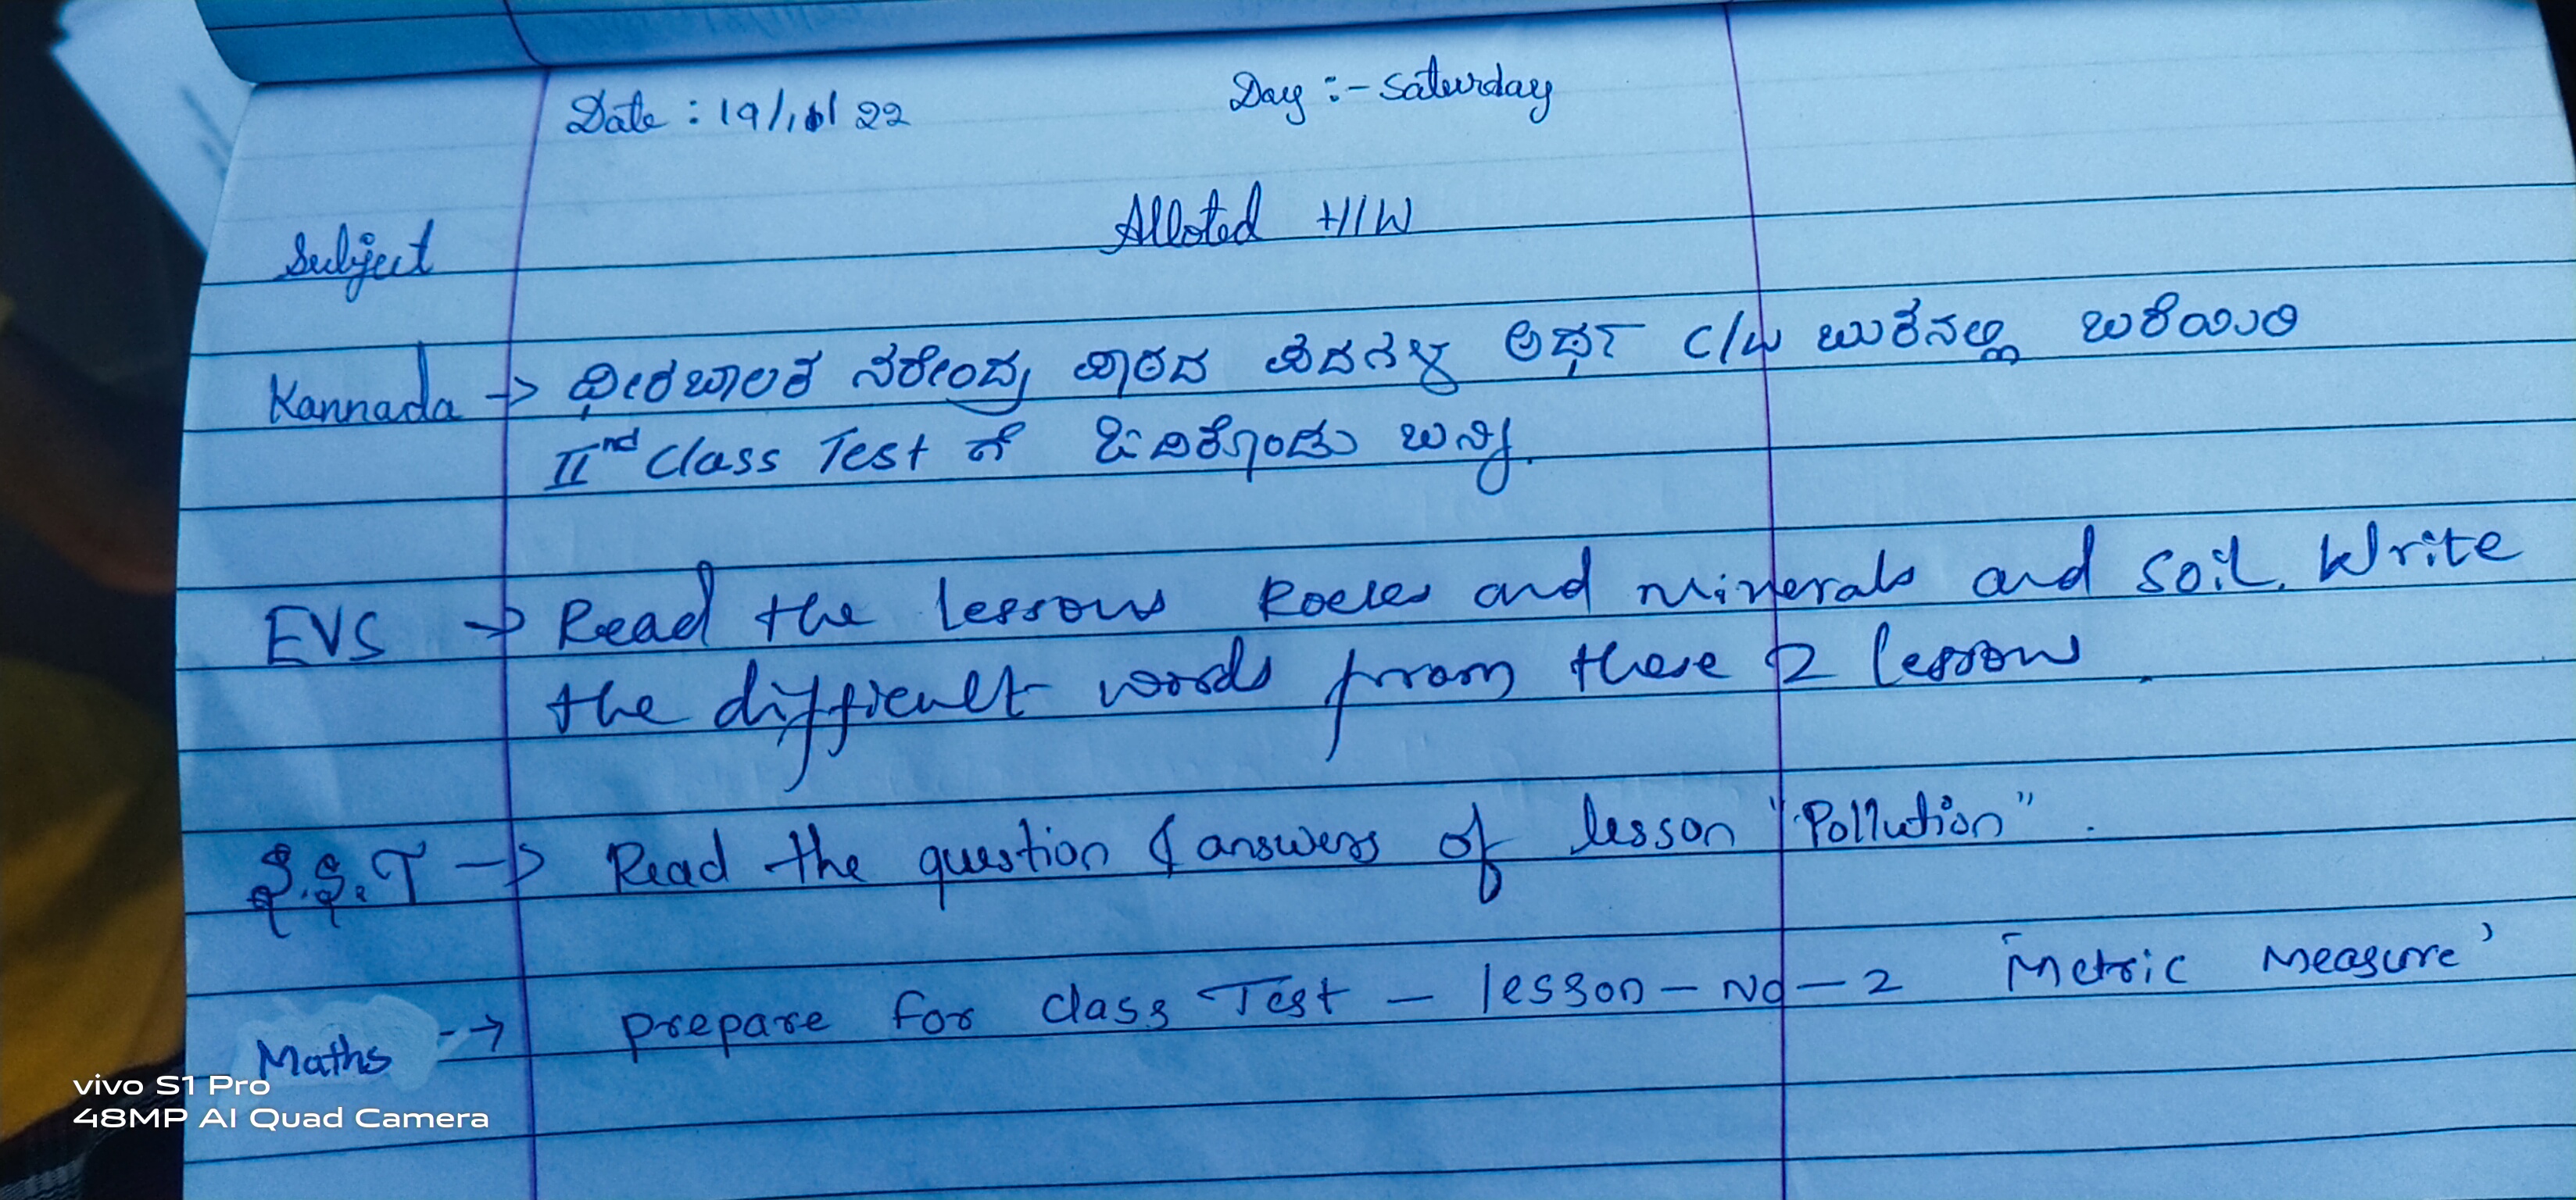 Date : 19/11/22 Day :- Saturday
Subject Alloted H/W
Kannada -> ಧೀರಬಾಲಕ ನರೇಂದ್ರ ಪಾಠದ ಪದಗಳ ಅರ್ಥ C/W ಬುಕನಲ್ಲಿ ಬರೆಯಿರಿ
IInd Class Test ಗೆ ಓದಿಕೊಂಡು ಬನ್ನಿ.
EVS -> Read the lessons Rocks and Minerals and Soil. Write
the difficult words from these 2 lessons.
S.S.T -> Read the question & answers of lesson "Pollution".
Maths -> prepare for class Test - lesson - No - 2 'Metric Measure'
vivo S1 Pro
48MP AI Quad Camera